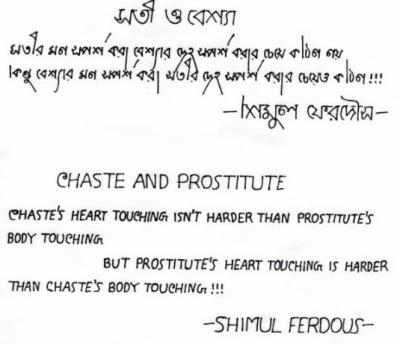 সতী ও বেশ্যা
সতীর মন স্পর্শ করা বেশ্যার দেহ স্পর্শ করার চেয়ে কঠিন নয়
কিন্তু বেশ্যার মন স্পর্শ করা সতীর দেহ স্পর্শ করার চেয়েও কঠিন !!!
—শিমুল ফেরদৌস—
CHASTE AND PROSTITUTE
CHASTE'S HEART TOUCHING ISN'T HARDER THAN PROSTITUTE'S
BODY TOUCHING
BUT PROSTITUTE'S HEART TOUCHING IS HARDER
THAN CHASTE'S BODY TOUCHING !!!
—SHIMUL FERDOUS—